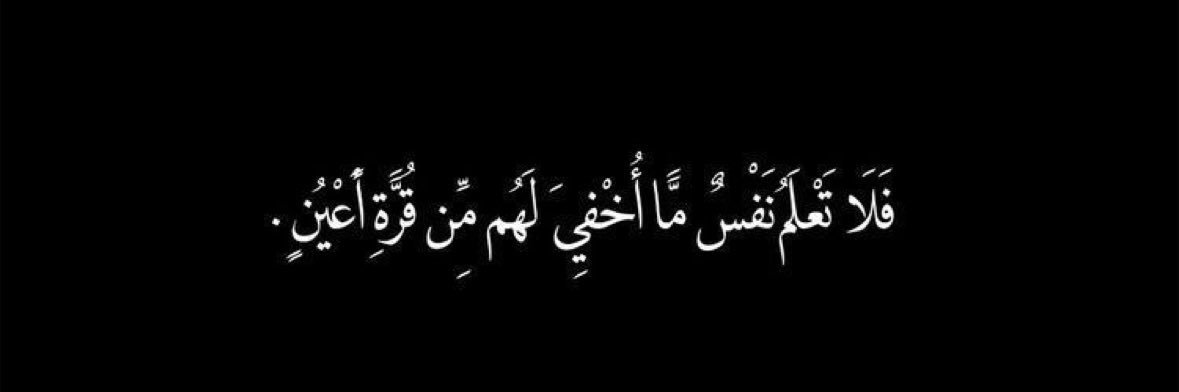 فَلَا تَعْلَمُ نَفْسٌ مَّا أُخْفِيَ لَهُم مِّن قُرَّةِ أَعْيُنٍ .